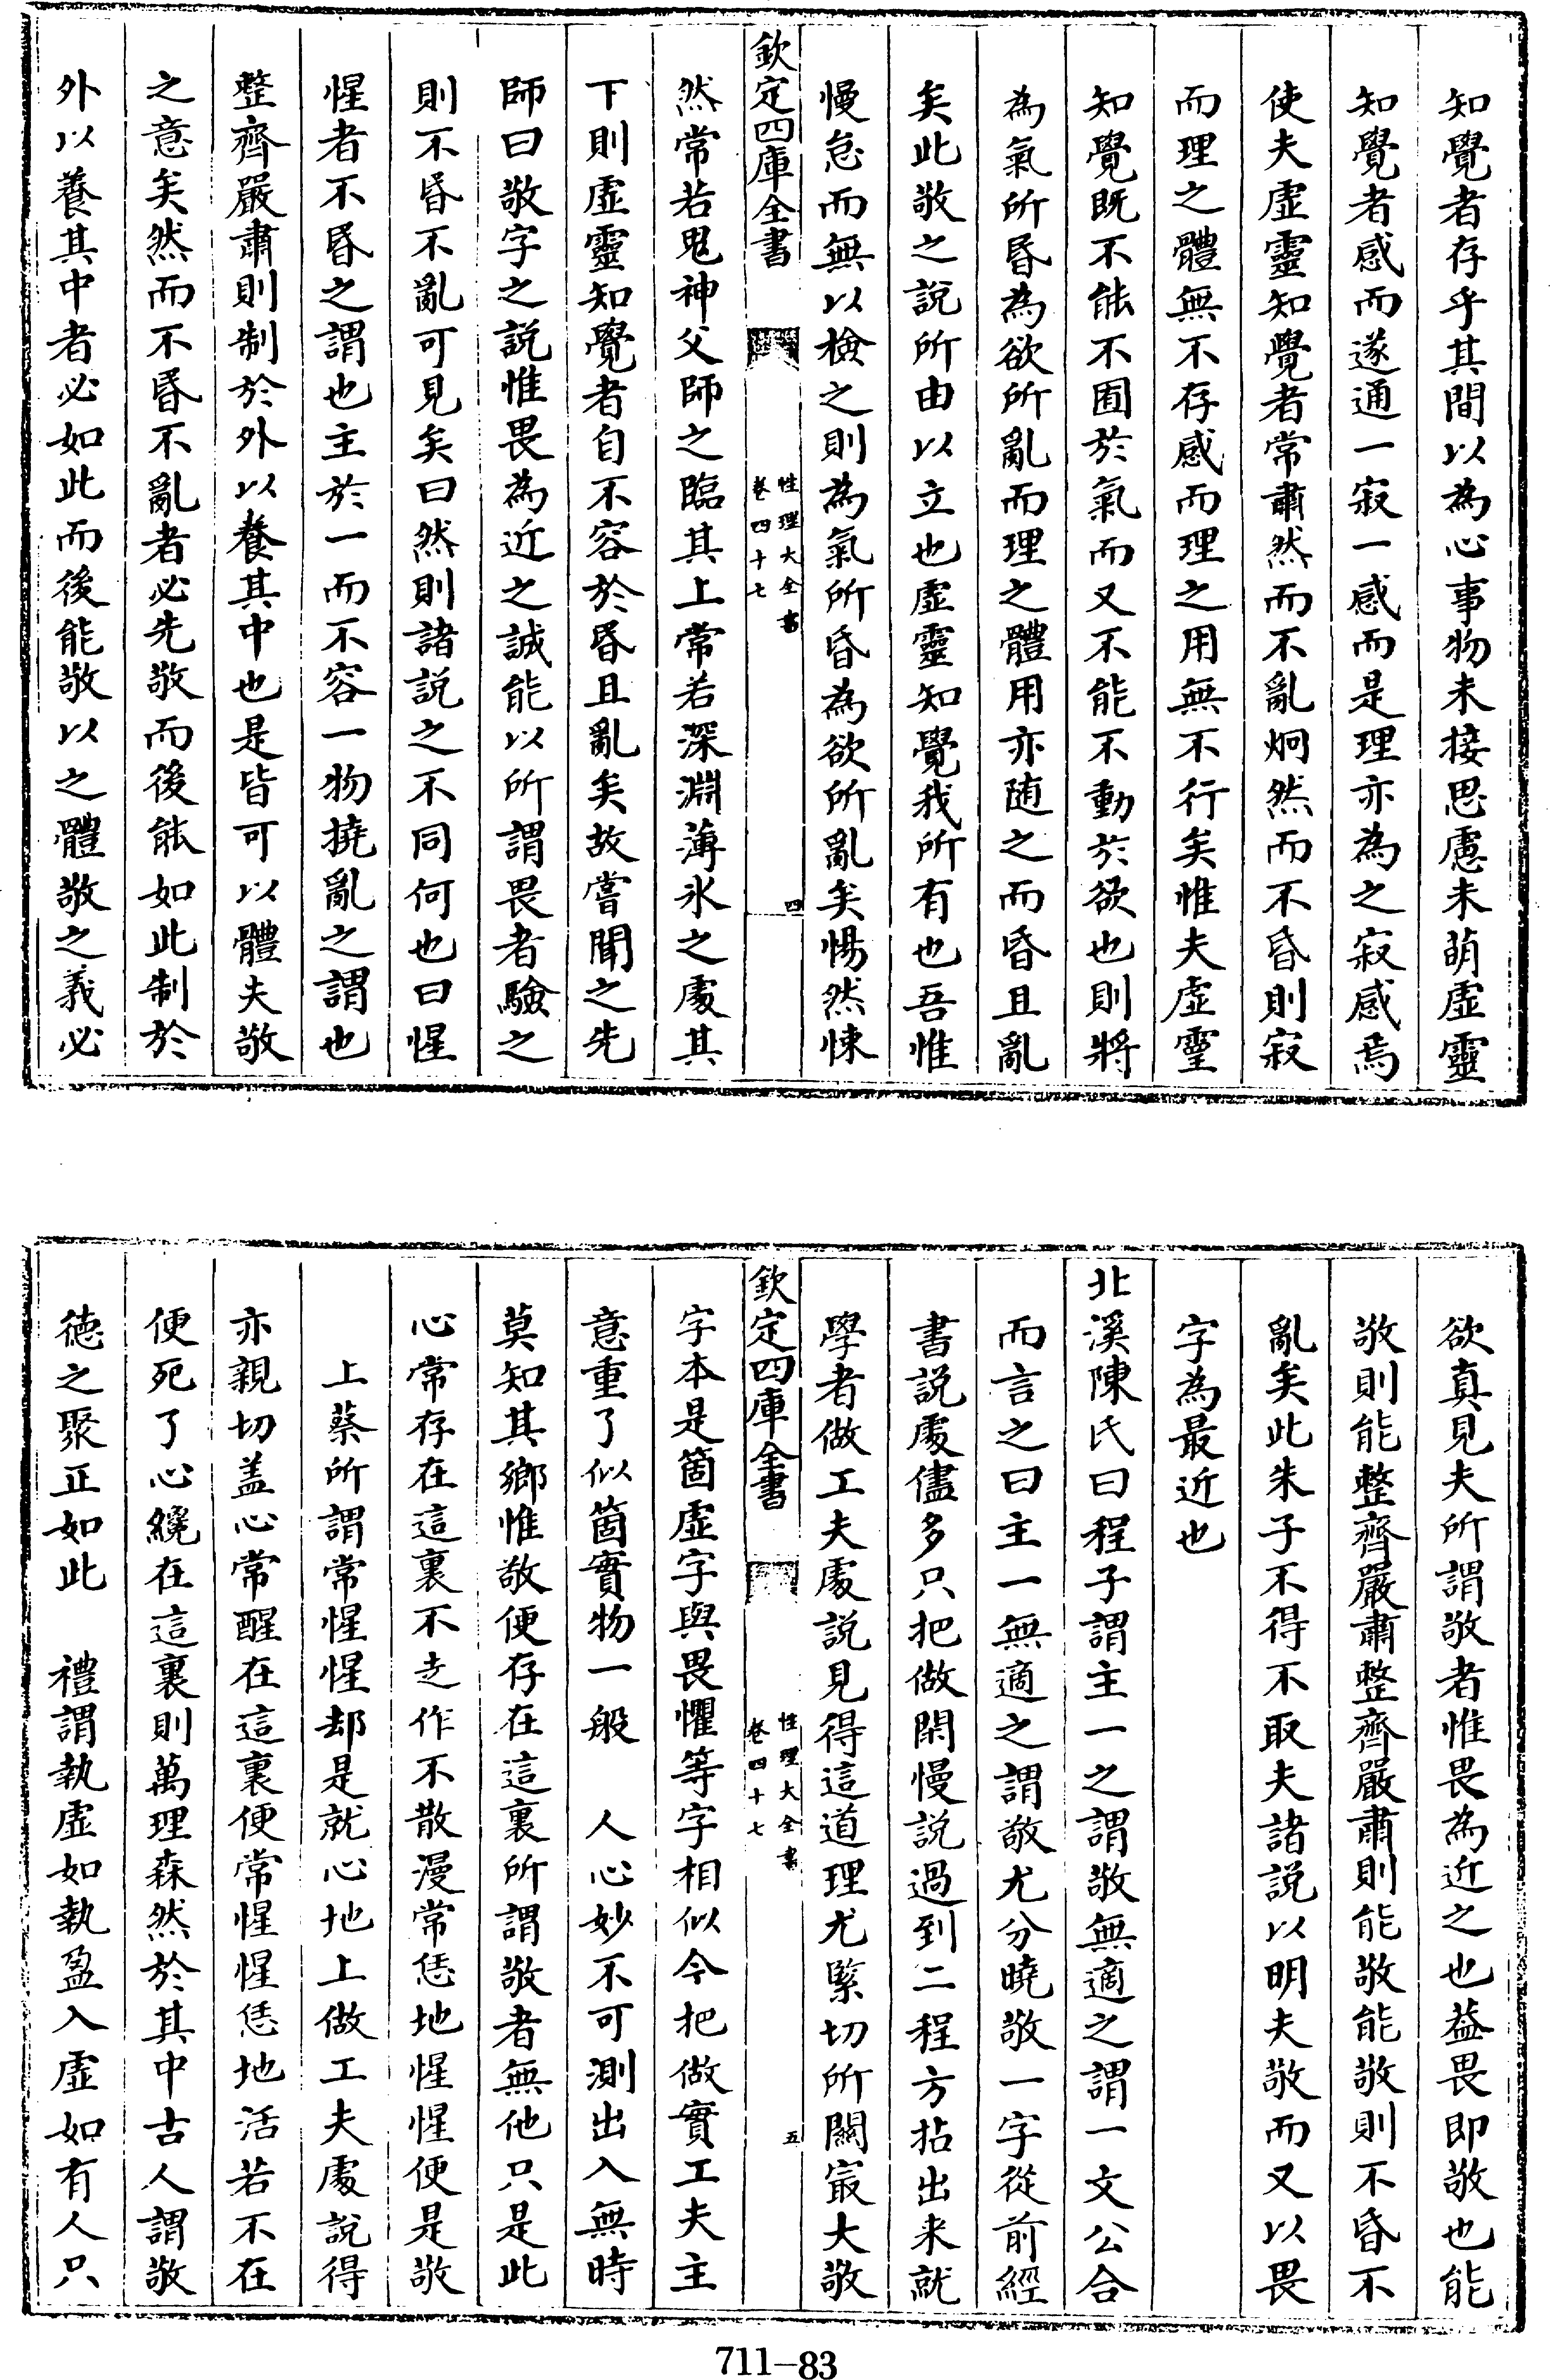 知覺者存乎其間以為心事物未接思慮未萌虛靈
知覺者感而遂通一寂一感而是理亦為之寂感焉
使夫虛靈知覺者常肅然而不亂炯然而不昏則寂
而理之體無不存感而理之用無不行矣惟夫虛靈
知覺既不能不囿於氣而又不能不動於欲也則將
為氣所昏為欲所亂而理之體用亦随之而昏且亂
矣此敬之說所由以立也虛靈知覺我所有也吾惟
慢怠而無以檢之則為氣所昏為欲所亂矣惕然悚
欽定四庫全書
性理大全書
卷四十七
四
然常若鬼神父師之臨其上常若深淵薄氷之處其
下則虛靈知覺者自不容於昏且亂矣故嘗聞之先
師曰敬字之說惟畏為近之誠能以所謂畏者驗之
則不昏不亂可見矣曰然則諸說之不同何也曰惺
惺者不昏之謂也主於一而不容一物撓亂之謂也
整齊嚴肅則制於外以養其中也是皆可以體夫敬
之意矣然而不昏不亂者必先敬而後能如此制於
外以養其中者必如此而後能敬以之體敬之義必
欲真見夫所謂敬者惟畏為近之也葢畏即敬也能
敬則能整齊嚴肅整齊嚴肅則能敬能敬則不昏不
亂矣此朱子不得不取夫諸說以明夫敬而又以畏
字為最近也
北溪陳氏曰程子謂主一之謂敬無適之謂一文公合
而言之曰主一無適之謂敬尤分曉敬一字從前經
書説處儘多只把做閑慢説過到二程方拈出来就
學者做工夫處説見得這道理尤緊切所關㝡大敬
欽定四庫全書
性理大全書
卷四十七
五
字本是箇虛字與畏懼等字相似今把做實工夫主
意重了似箇實物一般　人心妙不可測出入無時
莫知其鄉惟敬便存在這裏所謂敬者無他只是此
心常存在這裏不走作不散漫常恁地惺惺便是敬
上蔡所謂常惺惺却是就心地上做工夫處說得
亦親切盖心常醒在這裏便常惺惺恁地活若不在
便死了心纔在這裏則萬理森然於其中古人謂敬
德之聚正如此　禮謂執虛如執盈入虛如有人只
711-83